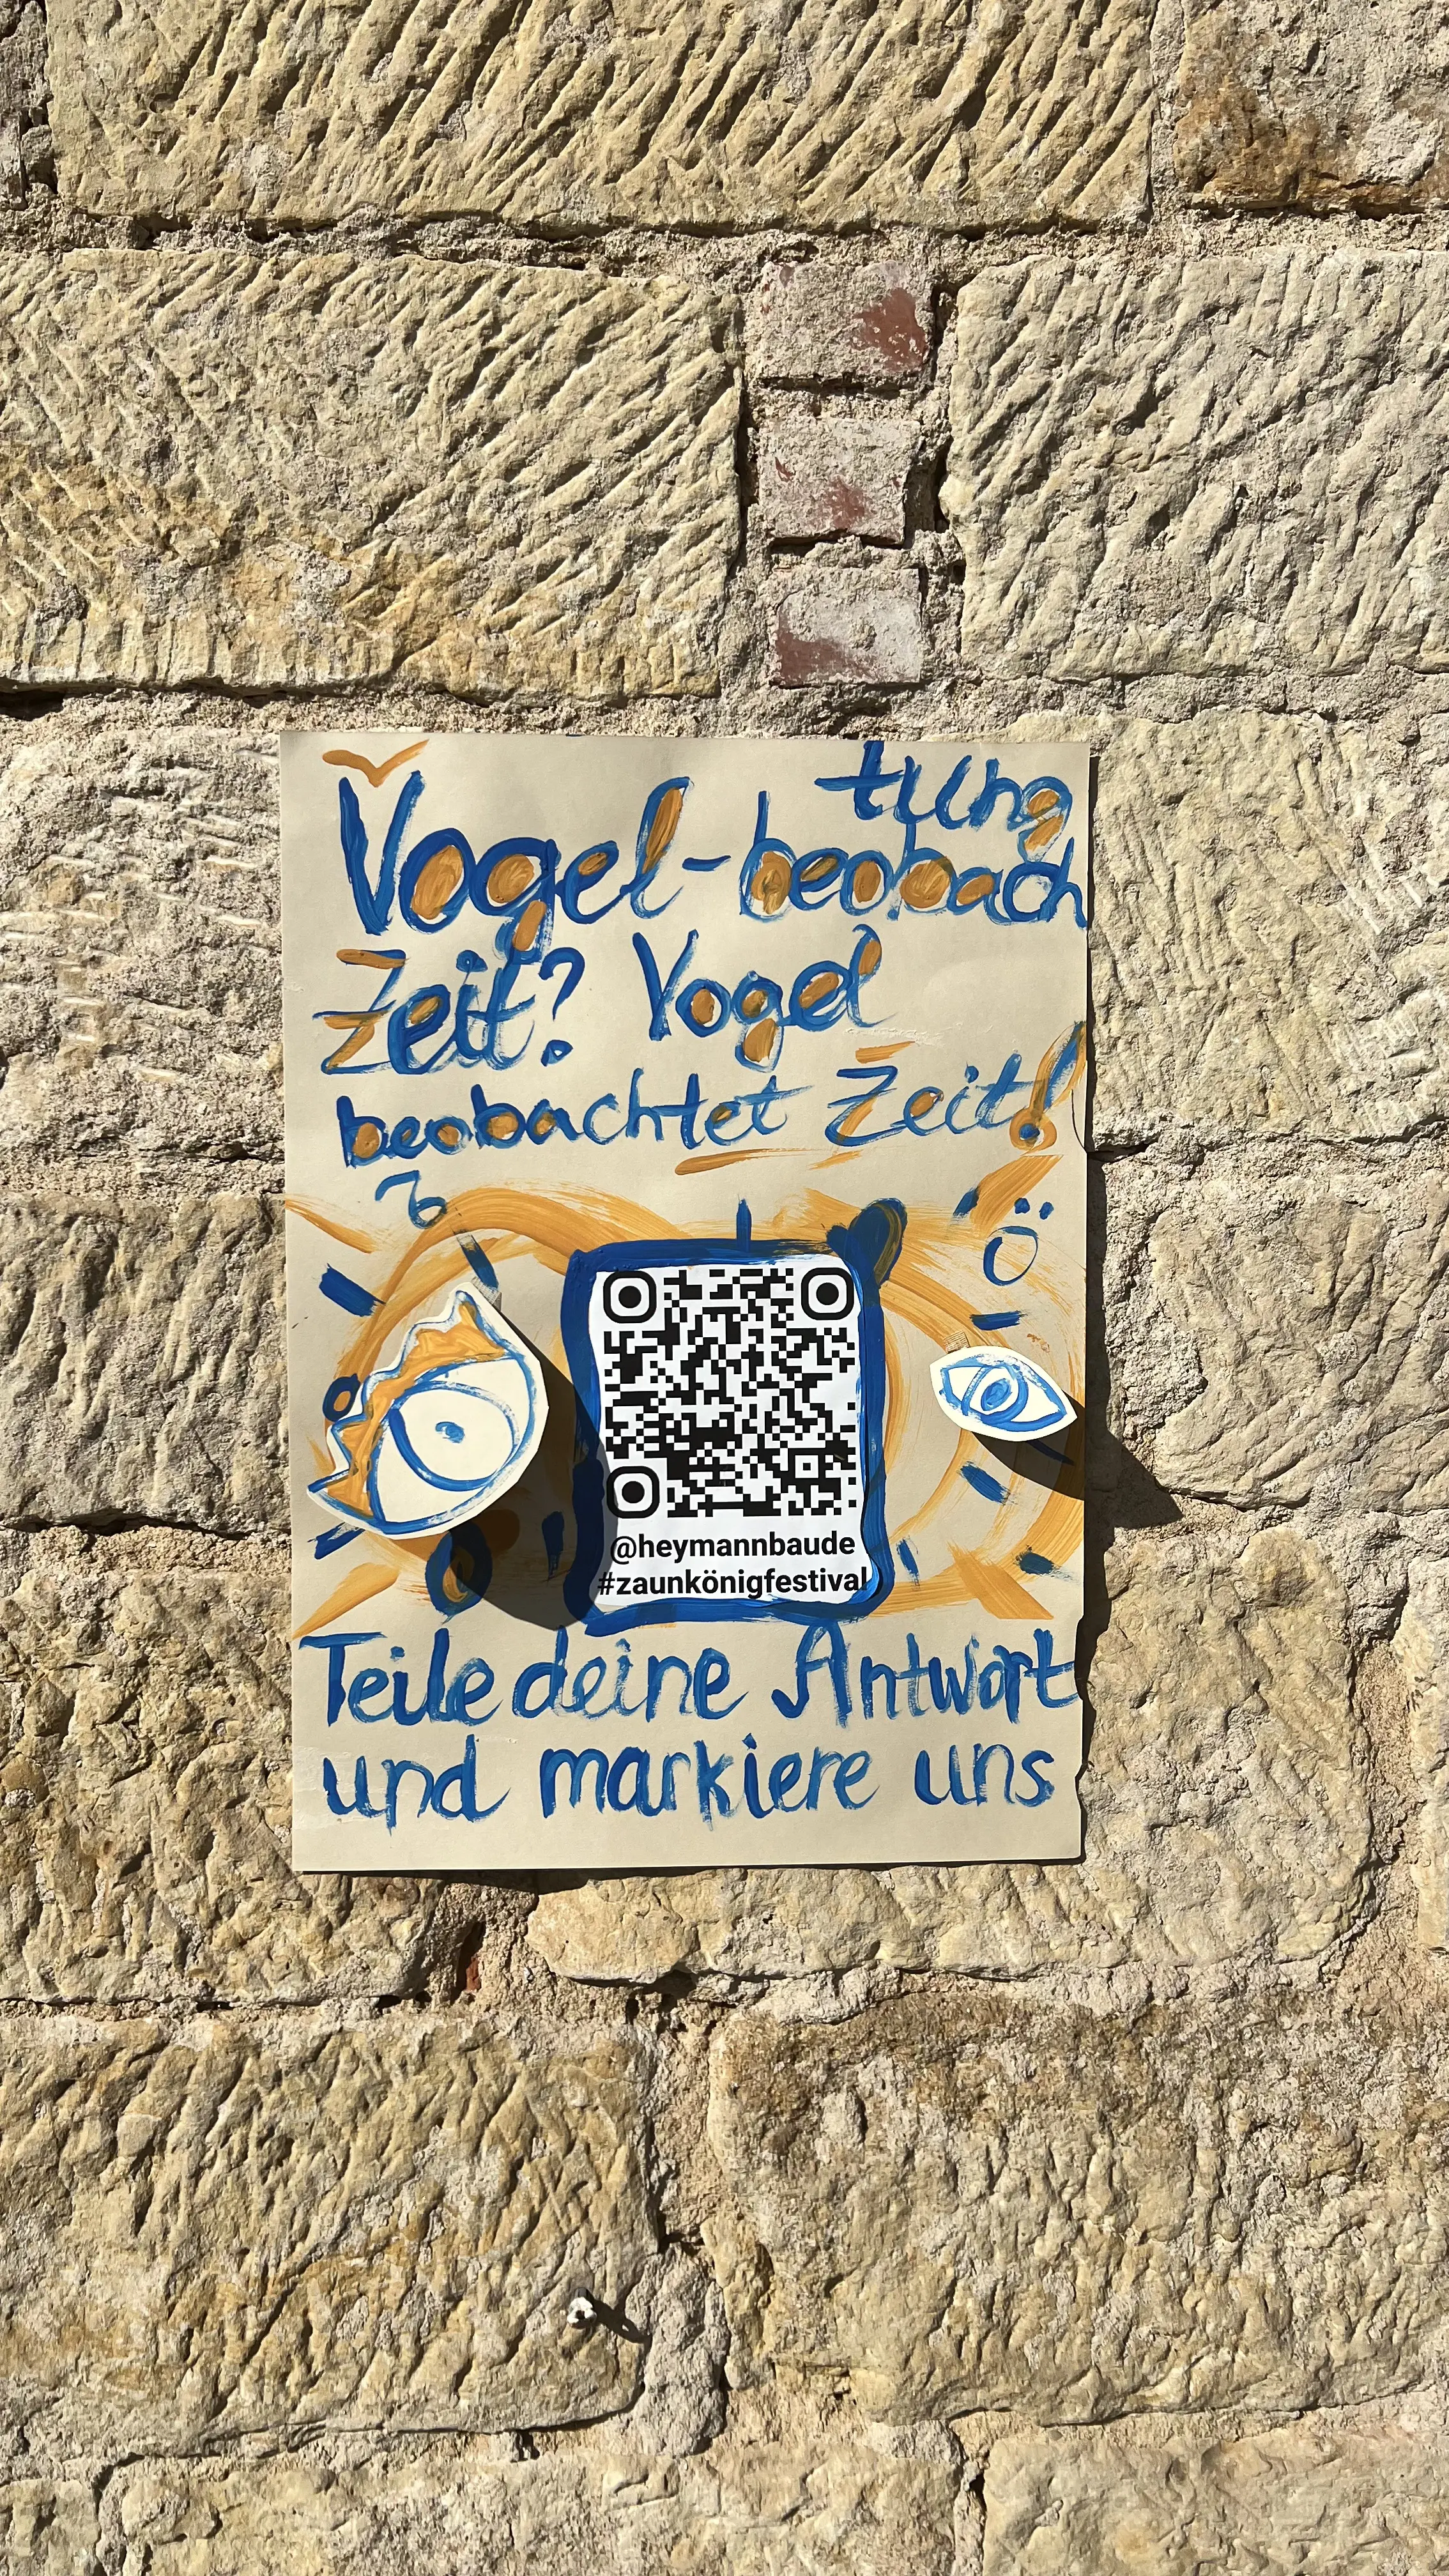 Vogel-beobach
tung
Zeit? Vogel
beobachtet Zeit!
@heymannbaude
#zaunkönigfestival
Teile deine Antwort
und markiere uns